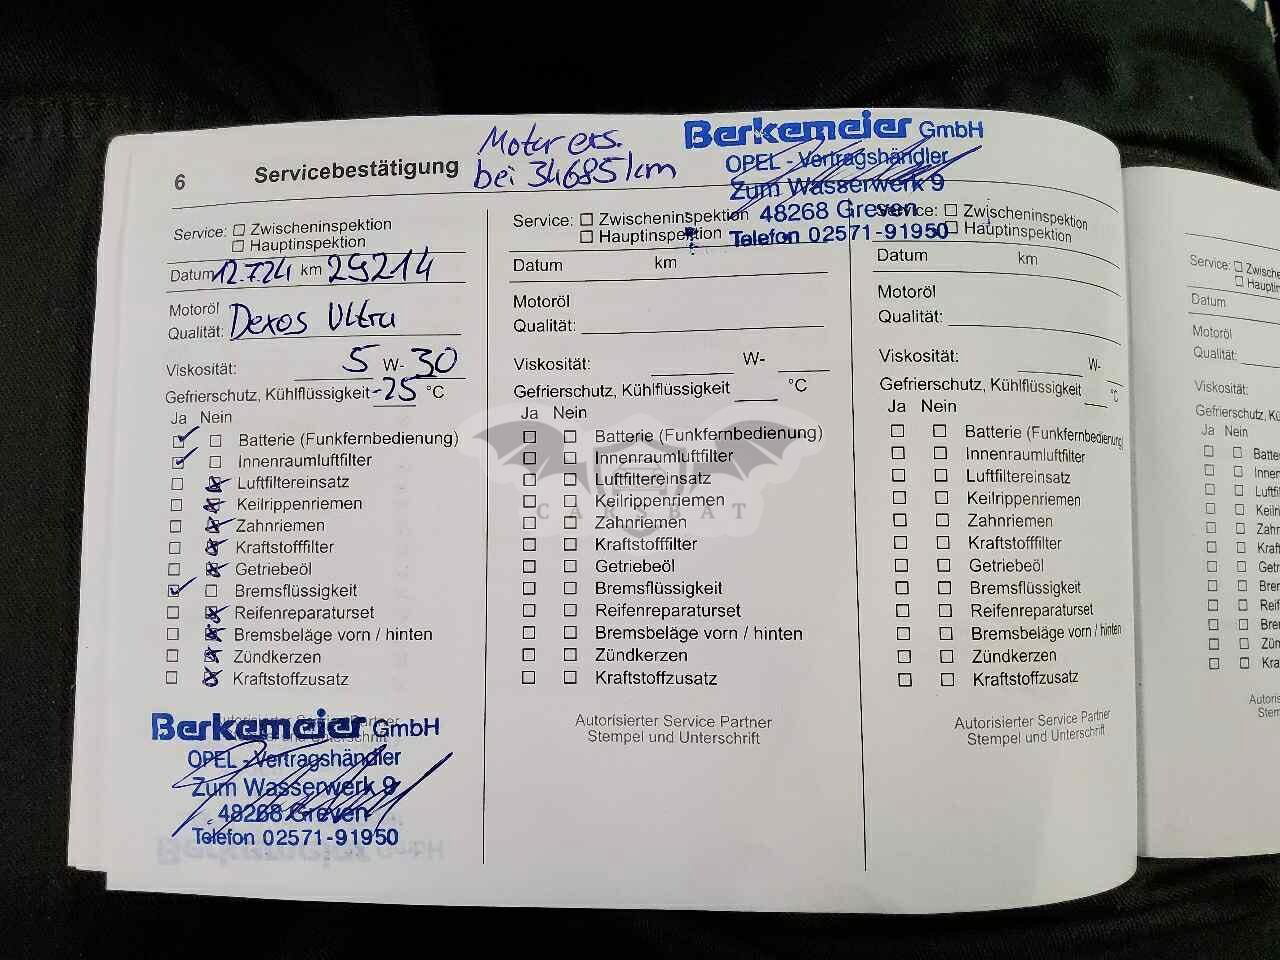 6 Servicebestätigung
Motor ers.
bei 34685 km
Berkemeier GmbH
OPEL - Vertragshändler
Zum Wasserwerk 9
48268 Greven
Telefon 02571-91950
Service: Zwischeninspektion
Hauptinspektion
Datum 12.7.24 km 29214
Motoröl
Qualität: Dexos Ultra
Viskosität: 5 W- 30
Gefrierschutz, Kühlflüssigkeit -25 °C
Ja Nein
Batterie (Funkfernbedienung)
Innenraumluftfilter
Luftfiltereinsatz
Keilrippenriemen
Zahnriemen
Kraftstofffilter
Getriebeöl
Bremsflüssigkeit
Reifenreparaturset
Bremsbeläge vorn / hinten
Zündkerzen
Kraftstoffzusatz
Autorisierter Service Partner
Stempel und Unterschrift
Berkemeier GmbH
OPEL - Vertragshändler
Zum Wasserwerk 9
48268 Greven
Telefon 02571-91950
Service: Zwischeninspektion
Hauptinspektion
Datum km
Motoröl
Qualität:
Viskosität: W-
Gefrierschutz, Kühlflüssigkeit °C
Ja Nein
Batterie (Funkfernbedienung)
Innenraumluftfilter
Luftfiltereinsatz
Keilrippenriemen
Zahnriemen
Kraftstofffilter
Getriebeöl
Bremsflüssigkeit
Reifenreparaturset
Bremsbeläge vorn / hinten
Zündkerzen
Kraftstoffzusatz
Autorisierter Service Partner
Stempel und Unterschrift
CARSBAT
Service: Zwischeninspektion
Hauptinspektion
Datum km
Motoröl
Qualität:
Viskosität: W-
Gefrierschutz, Kühlflüssigkeit °C
Ja Nein
Batterie (Funkfernbedienung)
Innenraumluftfilter
Luftfiltereinsatz
Keilrippenriemen
Zahnriemen
Kraftstofffilter
Getriebeöl
Bremsflüssigkeit
Reifenreparaturset
Bremsbeläge vorn / hinten
Zündkerzen
Kraftstoffzusatz
Autorisierter Service Partner
Stempel und Unterschrift
Service: Zwische
Haupti
Datum
Motoröl
Qualität:
Viskosität:
Gefrierschutz, Kü
Ja Nein
Batte
Innen
Luftfi
Keilri
Zahn
Kraft
Getr
Brer
Reif
Bre
Zün
Kra
Autoris
Stemp